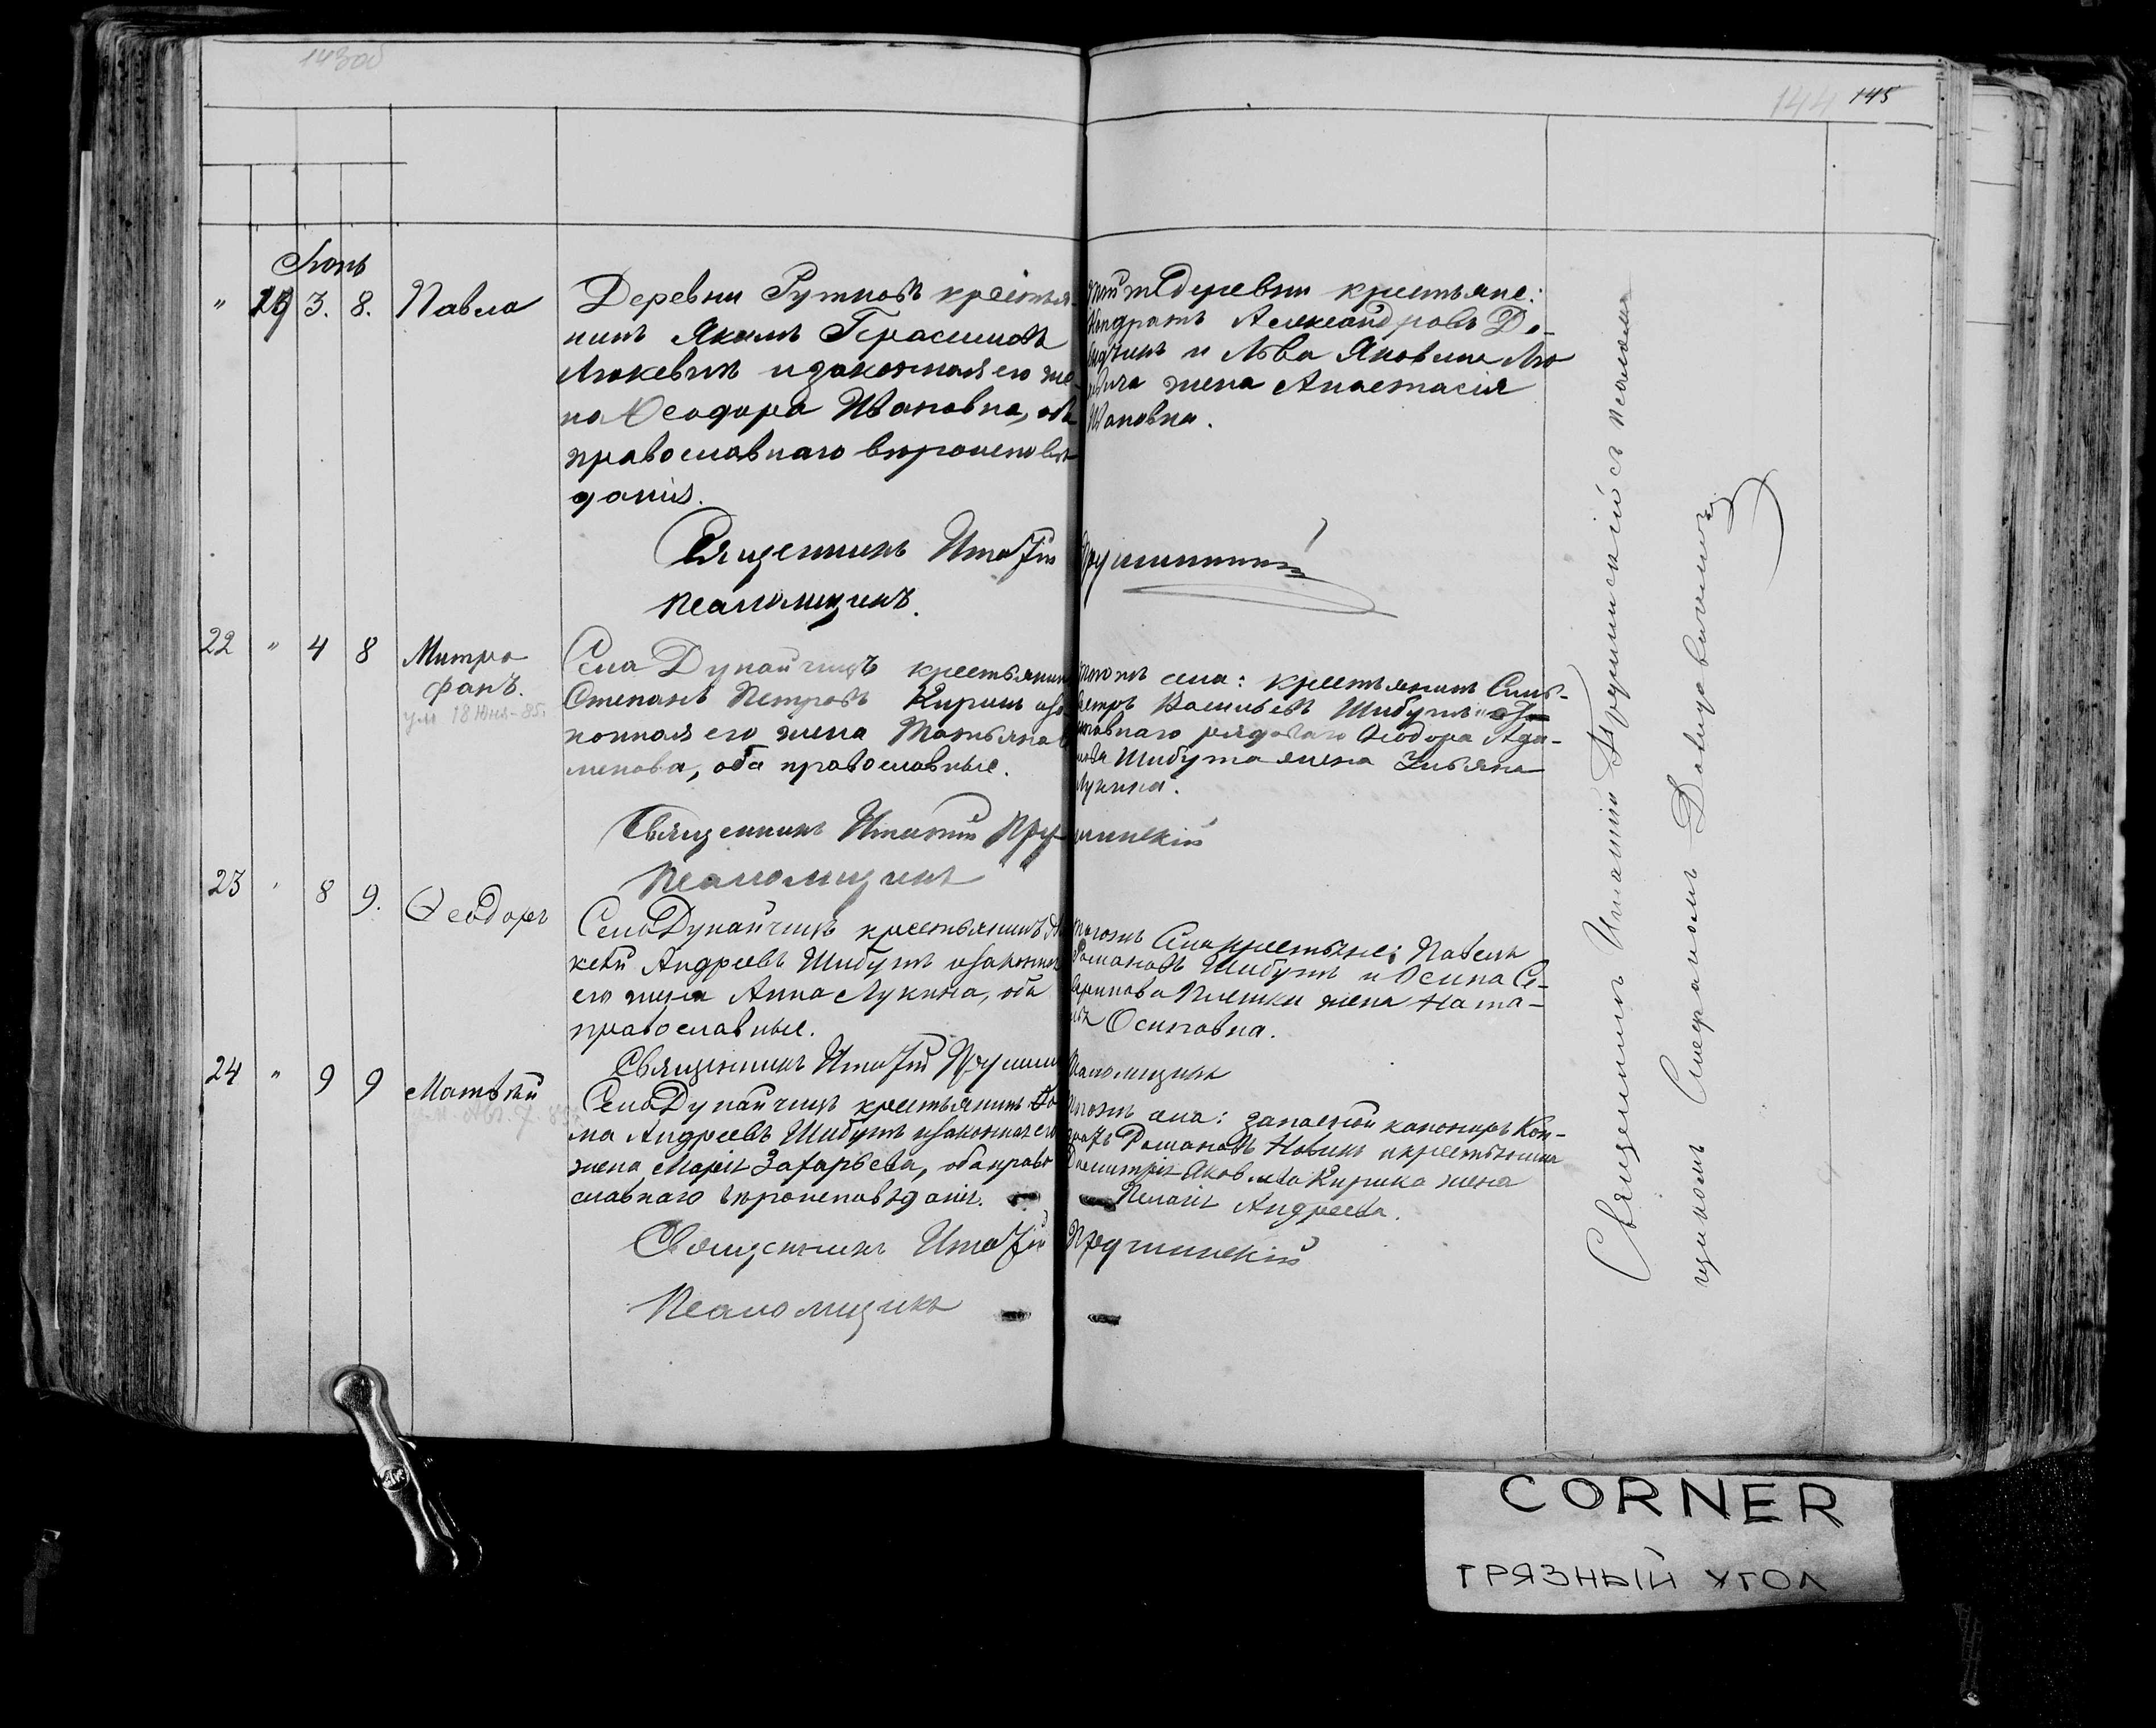 143об
144 145
Іюнь
" 19 3. 8. Павла
Деревни Гутновъ крестья-
нинъ Якимъ Герасимовъ
Люкевичъ и законная его же-
на Ѳеодора Ивановна, оба
православнаго вѣроисповѣ-
данія.
той же деревни крестьяне:
Кондратъ Александровъ
и Льва Яковлева
жена Анастасія
Ивановна.
Священникъ Игнатій Прушинскій
Псаломщикъ.
22 " 4 8 Митро-
фанъ.
ум 18 Юня-85.
Села Дунайчицъ крестьянинъ
Степанъ Петровъ Кирикъ и за-
конная его жена Татьяна
менова, оба православные.
того же села: крестьянинъ Силь-
вестръ Васильевъ Шибутъ и
ставнаго рядоваго Ѳеодора Ада-
мова Шибута жена Ульяна
Лукина.
Священникъ Игнатій Прушинскій
Псаломщикъ
23 " 8 9. Ѳеодоръ
Села Дунайчицъ крестьянинъ
Андреевъ Шибутъ и законная
его жена Анна Лукина, оба
православные.
того же села крестьяне: Павелъ
Романовъ Шибутъ и Осипа Се-
веринова Плешки жена Ната-
лія Осиповна.
Священникъ Игнатій Прушин
Псаломщикъ
24 " 9 9 Матѳѣй
ум. Авг. 7. 85
Села Дунайчицъ крестьянинъ Ѳо-
ма Андреевъ Шибутъ и законная его
жена Марія Захарьева, оба право-
славнаго вѣроисповѣданія.
того же села: запасной канониръ Кон-
дратъ Романовъ Новикъ и крестьянина
Димитрія Яковлева Кирика жена
Пелагія Андреева.
Священникъ Игнатій Прушинскій
Псаломщикъ
Священникъ Игнатій Прушинскій съ псалом-
щикомъ Давидовичемъ
CORNER
ГРЯЗНЫЙ УГОЛ